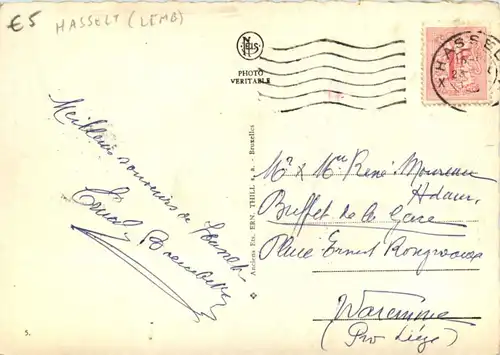 €5
HASSELT (LIMB)
NELS
PHOTO
VERITABLE
HASSEL
Meilleurs souvenirs de
Anciens Ets. ERN. THILL s. a. - Bruxelles
Mr x Mme René Moureau
Adam
Buffet de la Gare
Place Ernest Rongvaux
Waremme
(Pro Liège)
5.